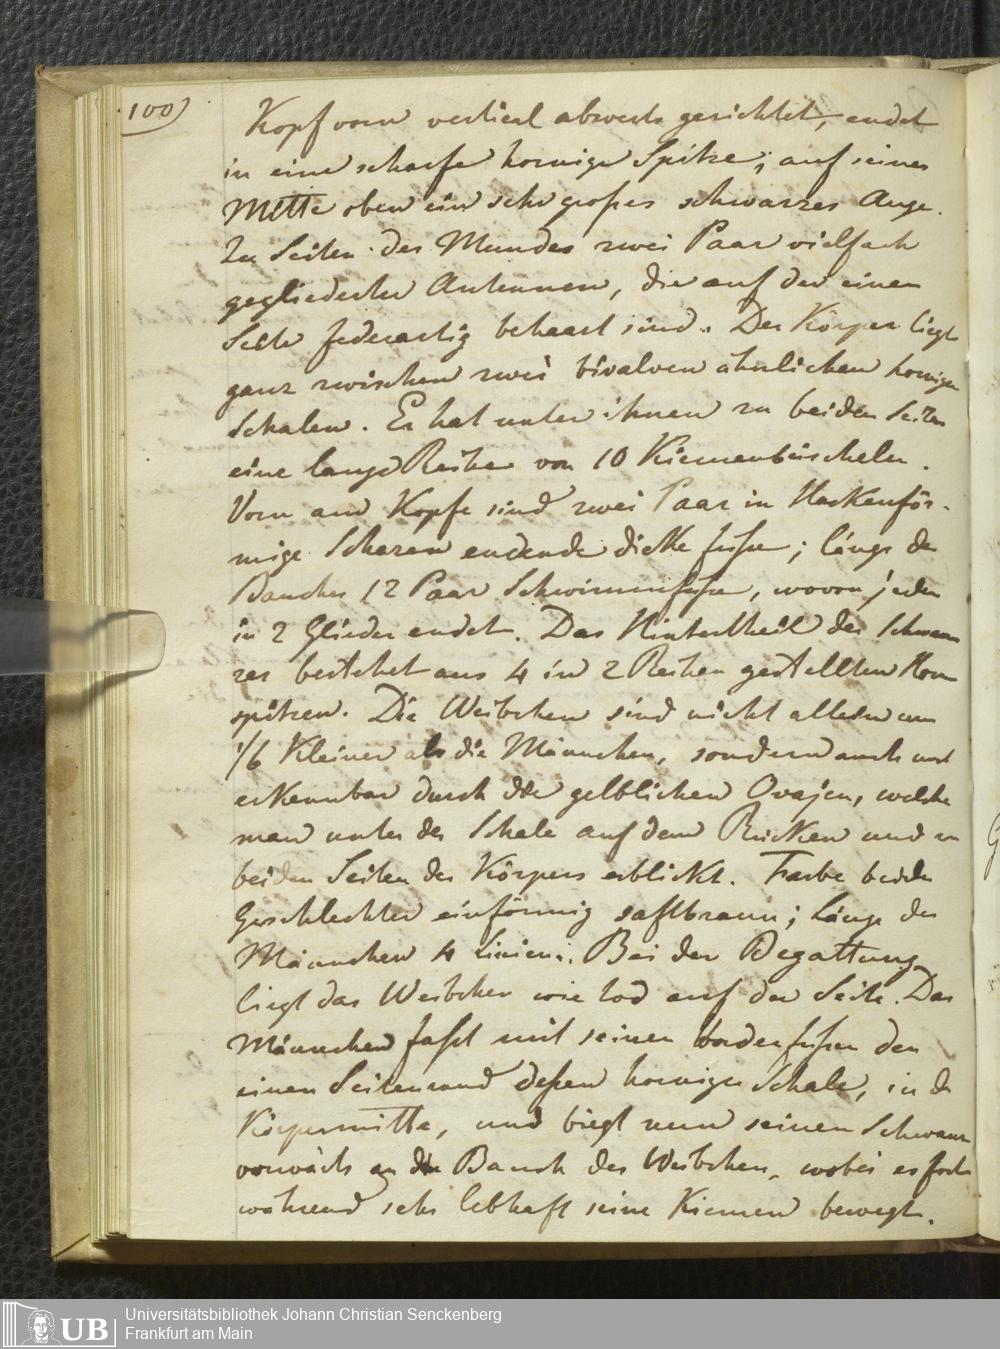 100)
Kopf vorn vertical abwerts gerichtet, endet
in eine scharfe hornige Spitze; auf seiner
Mitte oben ein sehr großes schwarzes Auge.
Zu Seiten des Mundes zwei Paar vielfach
gegliederter Antennen, die auf der einen
Seite federartig behaart sind. Der Körper liegt
ganz zwischen zwei bivalven ähnlichen hornigen
Schalen. Er hat unter ihnen zu beiden Seiten
eine lange Reihe von 10 Kiemenbüscheln.
Vorn am Kopfe sind zwei Paar in Hackenför-
mige Scheren endende dicke fuße; längs des
Bauches 12 Paar Schwimmfuße, wovon jeder
in 2 Glieder endet. Das Hintertheil des Schwan
zes besteht aus 4 in 2 Reihen gestellten Horn
spitzen. Die Weibchen sind nicht allein um
1/6 Kleiner als die Männchen, sondern auch
erkennbar durch die gelblichen Ovajen, welche
man unter der Schale auf dem Rücken und zu
beiden Seiten des Körpers erblickt. Farbe beider
Geschlechter einförmig saftbraun; Länge des
Männchen 4 Linien. Bei der Begattung
liegt das Weibchen wie tod auf der Seite. Das
Männchen faßt mit seinen vorderfußen den
einen Seitenrand deßen horniger Schale, in der
Körpermitte, und biegt nun seinen Schwanz
vorwärts an den Bauch des Weibchen, wobei es fort
während sehr lebhaft seine Kiemen bewegt.
UB
Universitätsbibliothek Johann Christian Senckenberg
Frankfurt am Main